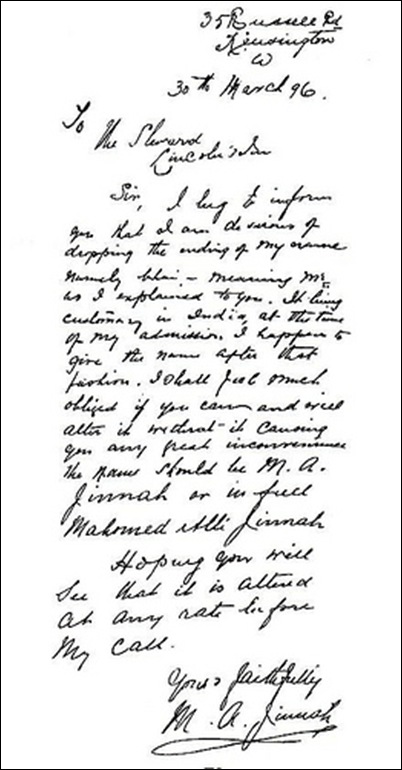 35 Russell Rd
Kensington
W
30th March 96.
To
The Steward
Lincoln's Inn
Sir, I beg to inform
you that I am desirous of
dropping the ending of my name
namely bhai - meaning Mr.
as I explained to you. It being
customary in India, at the time
of my admission. I happen to
give the name after that
fashion. I shall feel much
obliged if you can and will
alter it without it causing
you any great inconvenience
the name should be M. A.
Jinnah or in full
Mahomed Alli Jinnah
Hoping you will
See that it is altered
at any rate before
my call.
Yours faithfully
M. A. Jinnah